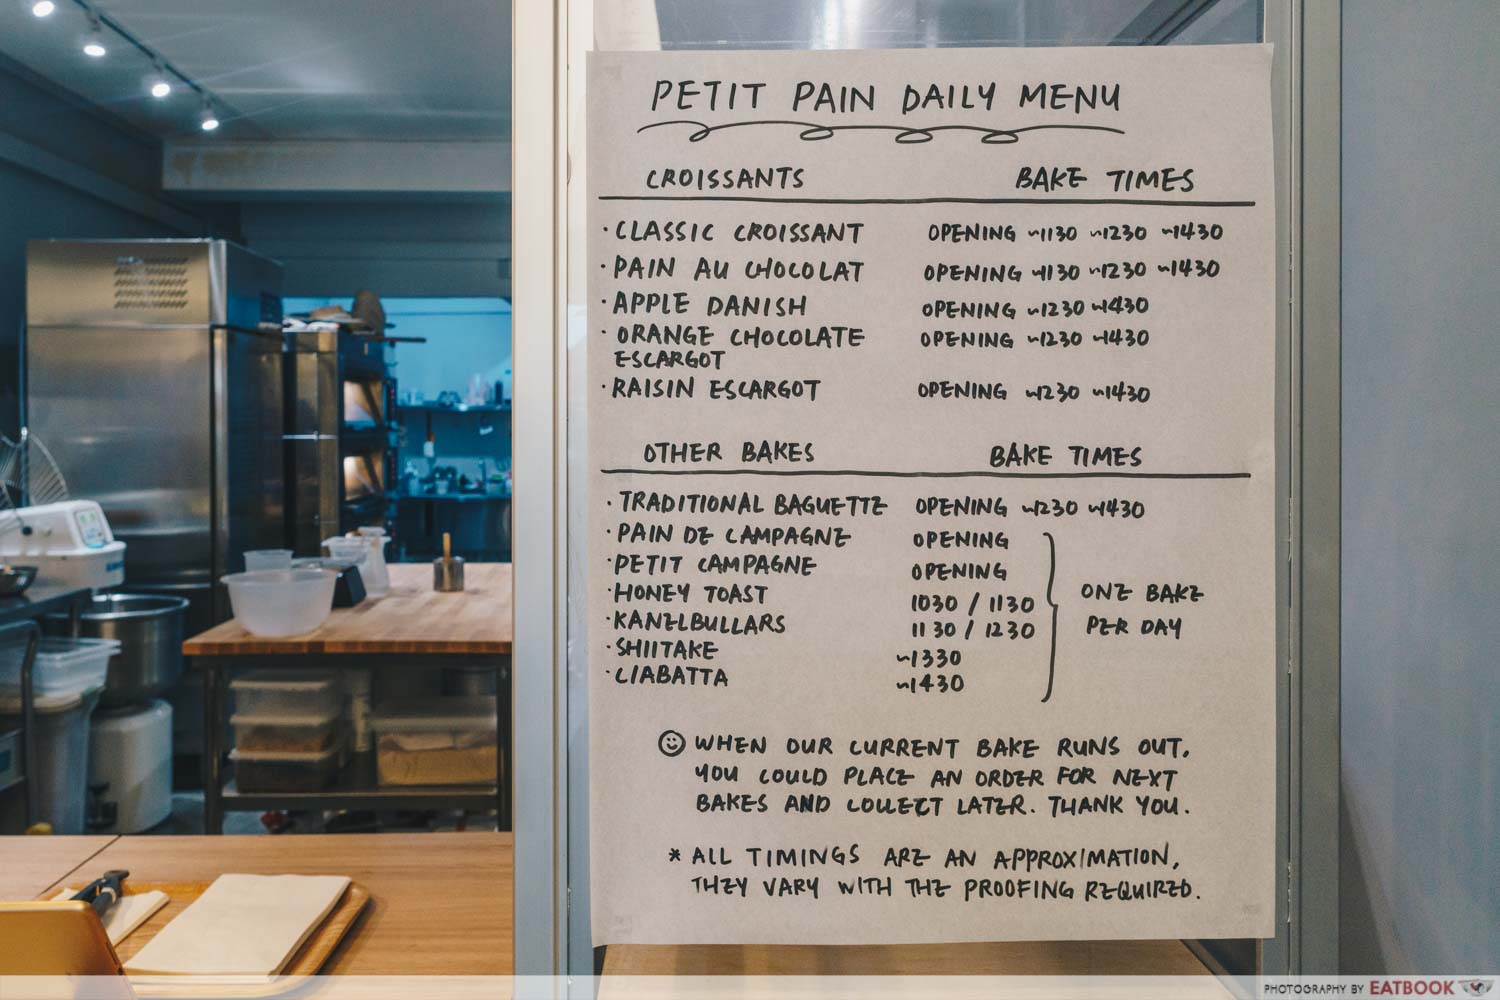 PETIT PAIN DAILY MENU
CROISSANTS BAKE TIMES
· CLASSIC CROISSANT OPENING ~1130 ~1230 ~1430
· PAIN AU CHOCOLAT OPENING ~1130 ~1230 ~1430
· APPLE DANISH OPENING ~1230 ~1430
· ORANGE CHOCOLATE OPENING ~1230 ~1430
ESCARGOT
· RAISIN ESCARGOT OPENING ~1230 ~1430
OTHER BAKES BAKE TIMES
· TRADITIONAL BAGUETTE OPENING ~1230 ~1430
· PAIN DE CAMPAGNE OPENING
· PETIT CAMPAGNE OPENING
· HONEY TOAST 1030 / 1130
· KANELBULLARS 1130 / 1230
· SHIITAKE ~1330
· CIABATTA ~1430
ONE BAKE
PER DAY
☺ WHEN OUR CURRENT BAKE RUNS OUT,
YOU COULD PLACE AN ORDER FOR NEXT
BAKES AND COLLECT LATER. THANK YOU.
* ALL TIMINGS ARE AN APPROXIMATION,
THEY VARY WITH THE PROOFING REQUIRED.
PHOTOGRAPHY BY EATBOOK